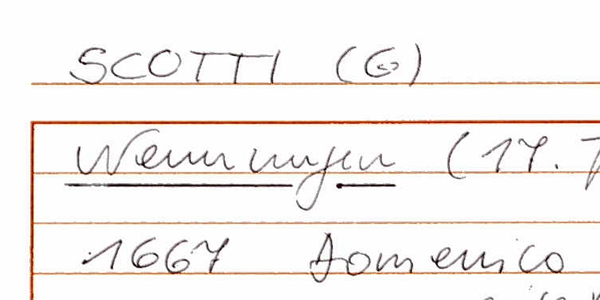 SCOTTI (G)
Wenningen (17. J
1667 Domenico